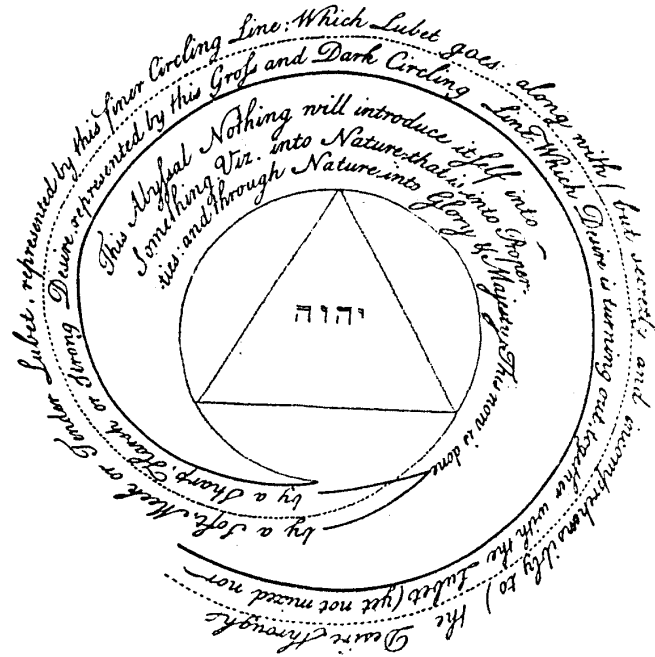 This Abyssal Nothing will introduce itself into
Something Viz. into Nature, that is into Proper-
ties: and through Nature, into Glory & Majesty: This now is done
by a Sharp, Harsh or Strong Desire represented by this Gross and Dark Circling Line: Which Desire is turning out together with the Lubet (yet not mixed nor
by a Soft, Meek or Tender Lubet, represented by this finer Circling Line: Which Lubet goes along with ( but secretly and incomprehensibly to ) the Desire through=
יהוה